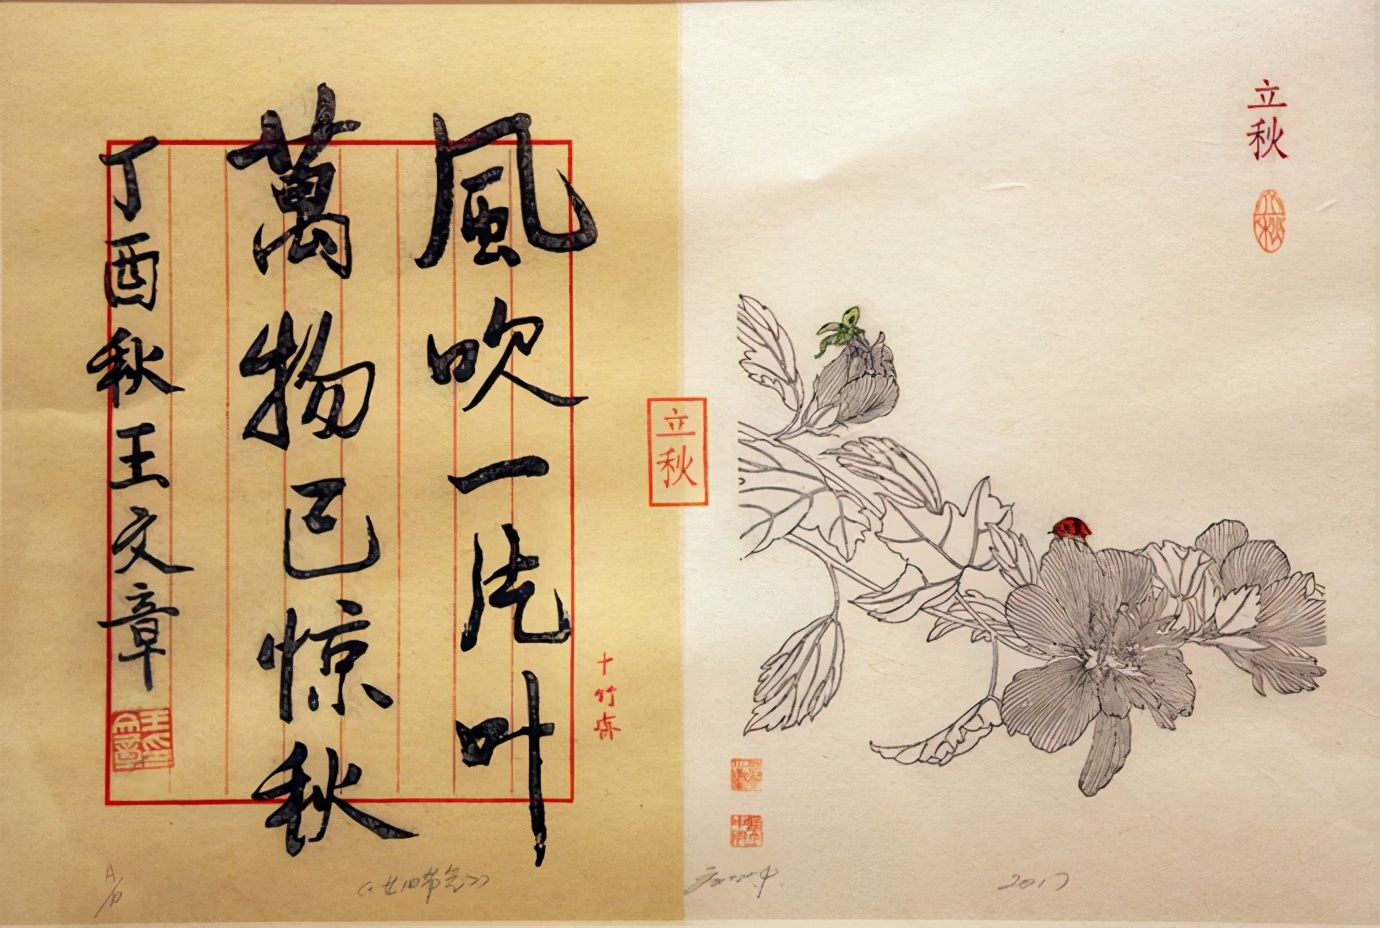 立秋
風吹一片叶
萬物已惊秋
丁酉秋王文章
十竹斋
立秋
《廿四节气》
2017